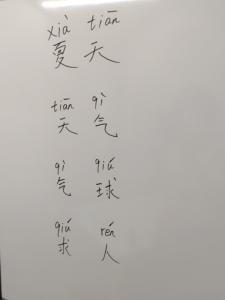 xià tiān
夏 天
tiān qì
天 气
qì qiú
气 球
qiú rén
求 人